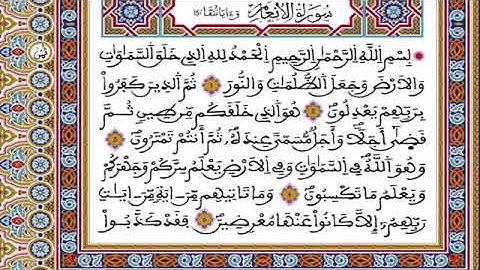 سُورَةُ الْأَنْعَامِ وَءَايَاتُهَا
بِسْمِ اِللَّهِ اِلرَّحْمَٰنِ اِلرَّحِيمِ اِلْحَمْدُ لِلهِ اِلذِے خَلَقَ اَلسَّمَٰوَٰتِ
وَالَارْضَ وَجَعَلَ اَلظُّلُمَٰتِ وَالنُّورَ ثُمَّ اَلذِينَ كَفَرُواْ
بِرَبِّهِمْ يَعْدِلُونَ هُوَ اَلذِے خَلَقَكُم مِّن طِينٍ ثُمَّ
قَضَىٰٓ أَجَلاً وَأَجَلٌ مُّسَمًّى عِندَهُۥ ثُمَّ أَنتُمْ تَمْتَرُونَ
وَهُوَ اَللَّهُ فِے اِلسَّمَٰوَٰتِ وَفِے اِلَارْضِ يَعْلَمُ سِرَّكُمْ وَجَهْرَكُمْ
وَيَعْلَمُ مَا تَكْسِبُونَ وَمَا تَاتِيهِم مِّنَ اٰيَةٍ مِّنَ اٰيَٰتِ
رَبِّهِمُۥٓ إِلَّا كَانُواْ عَنْهَا مُعْرِضِينَ فَقَدْ كَذَّبُواْ